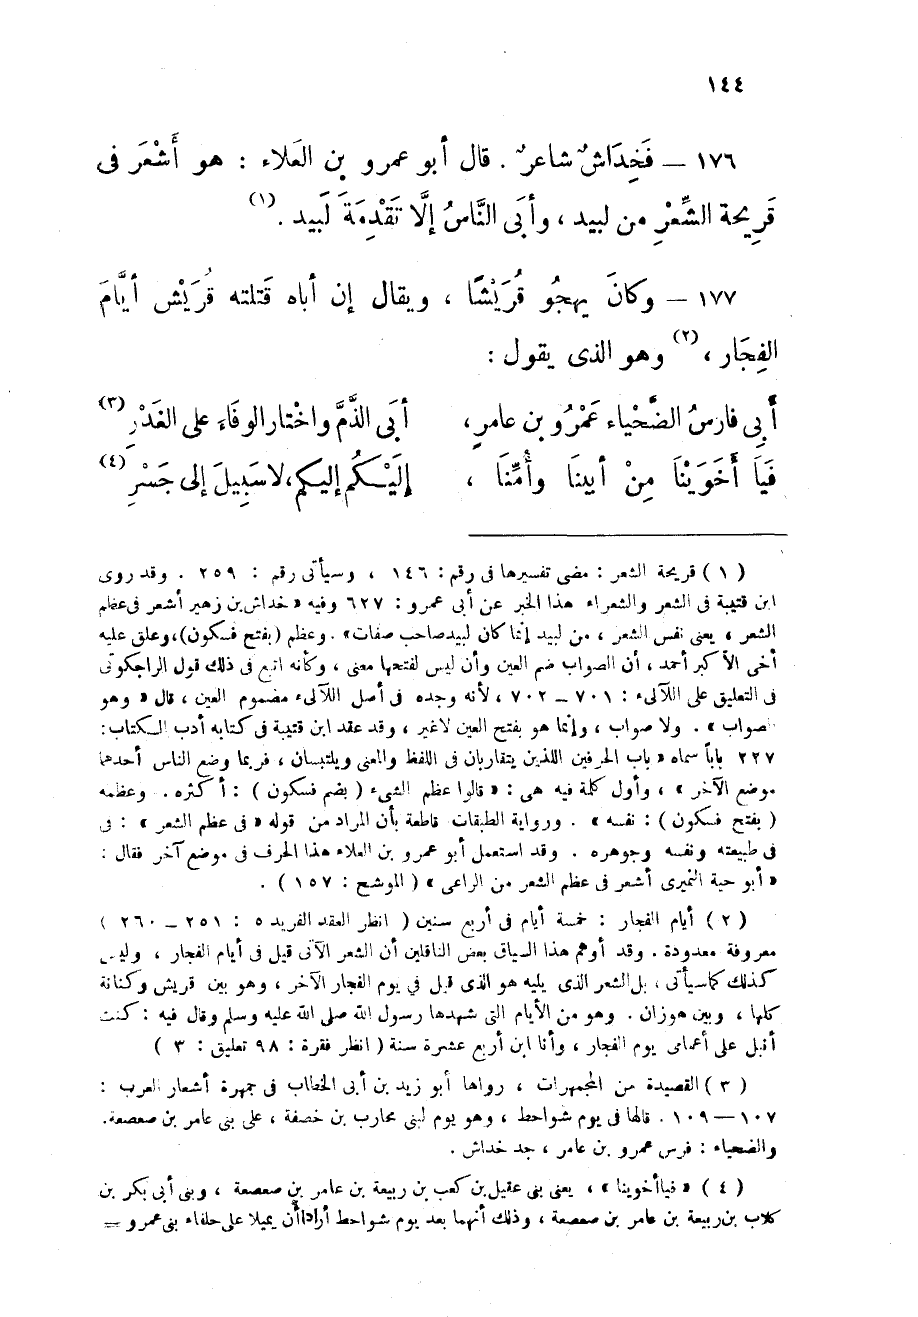 ١٤٤
١٧٦ — فَخِدَاشٌ شاعرٌ . قال أبو عمرو بن العَلاء : هو أَشْعَر فى
قَرِيحة الشِّعْرِ من لبيد ، وأَبَى النَّاسُ إلَّا تَقْدِمَةَ لَبيد .(١)
١٧٧ — وكانَ يهجُو قُرَيْشًا ، ويقال إن أباه قَتلته قُرَيْش أيَّامَ
الفِجَار ،(٢) وهو الذى يقول :
أَبِى فارسُ الضَّحْياء عَمْرُو بن عامرٍ، أبَى الذَّمَّ واخْتار الوفَاءَ على الغَدْرِ(٣)
فَيَا أَخَوَيْنَا مِنْ أبِينَا وأُمِّنَا ، إلَيْكُم إليكم، لا سَبِيلَ إلى جَسْرِ(٤)
(١) قريحة الشعر : مضى تفسيرها فى رقم : ١٤٦ ، وسيأتى رقم : ٢٥٩ . وقد روى
ابن قتيبة فى الشعر والشعراء هذا الخبر عن أبى عمرو : ٦٢٧ وفيه « خداش بن زهير أشعر فى عظم
الشعر ، يعنى نفس الشعر ، من لبيد إنما كان لبيد صاحب صفات» . وعظم (بفتح فسكون)، وعلق عليه
أخى الأكبر أحمد ، أن الصواب ضم العين وأن ليس لفتحها معنى ، وكأنه اتبع فى ذلك قول الراجكوتى
فى التعليق على اللآلىء : ٧٠١ – ٧٠٢ ، لأنه وجده فى أصل اللآلىء مضموم العين ، قال « وهو
الصواب » . ولا صواب ، وإنما هو بفتح العين لاغير ، وقد عقد ابن قتيبة فى كتابه أدب الكتاب :
٢٢٧ باباً سماه « باب الحرفين اللذين يتقاربان فى اللفظ والمعنى ويلتبسان ، فربما وضع الناس أحدهما
موضع الآخر » ، وأول كلمة فيه هى : « قالوا عظم الشىء ( بضم فسكون ) : أكثره . وعظمه
( بفتح فسكون ) : نفسه » . ورواية الطبقات قاطعة بأن المراد من قوله « فى عظم الشعر » : فى
فى طبيعته ونفسه وجوهره . وقد استعمل أبو عمرو بن العلاء هذا الحرف فى موضع آخر فقال :
« أبو حية النميرى أشعر فى عظم الشعر من الراعى » ( الموشح : ١٥٧ ) .
(٢) أيام الفجار : خمسة أيام فى أربع سنين ( انظر العقد الفريد ٥ : ٢٥١ – ٢٦٠ )
معروفة معدودة . وقد أوهم هذا السياق بعض الناقلين أن الشعر الآتى قيل فى أيام الفجار ، وليس
كذلك كما سيأتى ، بل الشعر الذى يليه هو الذى قيل فى يوم الفجار الآخر ، وهو بين قريش وكنانة
كلها ، وبين هوزان . وهو من الأيام التى شهدها رسول الله صلى الله عليه وسلم وقال فيه : كنت
أنبل على أعمامى يوم الفجار ، وأنا ابن أربع عشرة سنة ( انظر فقرة : ٩٨ تعليق : ٣ )
(٣) القصيدة من المجمهرات ، رواها أبو زيد بن أبى الخطاب فى جمهرة أشعار العرب :
١٠٧ – ١٠٩ . قالها فى يوم شواحط ، وهو يوم لبنى محارب بن خصفة ، على بنى عامر بن صعصعة.
والضحياء : فرس عمرو بن عامر ، جد خداش .
(٤) « فيا أخوينا » ، يعنى بنى عقيل بن كعب بن ربيعة بن عامر بن صعصعة ، وبنى أبى بكر بن
كلاب بن ربيعة بن عامر بن صعصعة ، وذلك أنهما بعد يوم شواحط أرادا أن يميلا على حلفاء بنى عمرو =